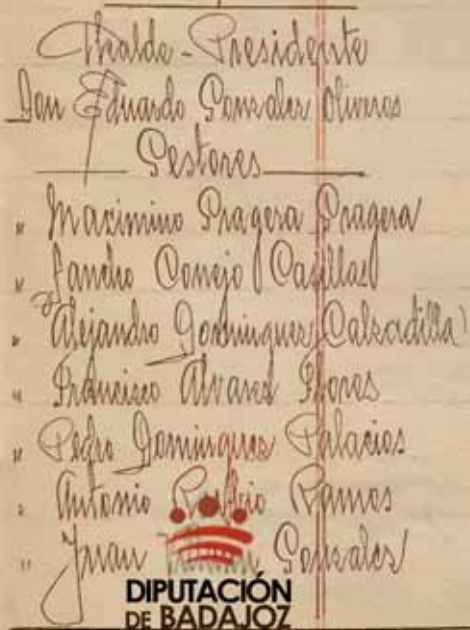 Alcalde-Presidente
Don Eduardo Gonzalez Oliveros
Gestores
" Maximino Pragera Pragera
" Sancho Conejo Casillas
" Alejandro Dominguez Calzadilla
" Francisco Alvarez Flores
" Pedro Dominguez Palacios
" Antonio Ramos
" Juan Gonzalez
DIPUTACIÓN
DE BADAJOZ